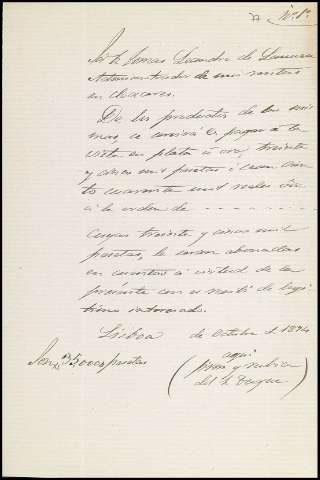 Nº 1º
Sr. D. Tomas Leandro de
Administrador de mis rentas
en
De los productos de las mis
mas, se servirá V. pagar á la
vista en plata ú oro, treinta
y cinco mil pesetas ó
cuarenta mil reales
á la orden de - - - - - - -
cuyas treinta y cinco mil
pesetas, le seran abonadas
en cuentas á virtud de la
presente con el recibí de legi
timo interesado.
Lisboa de Octubre de 1874
Son 35000 pesetas
(aqui
firma y rubrica
del Sr. Duque)